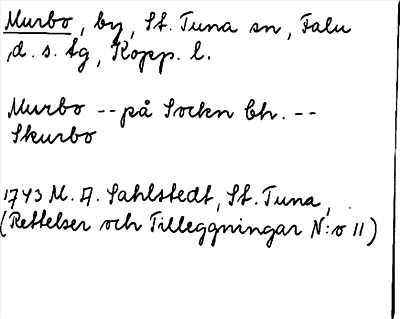 Murbo, by, St. Tuna sn, Falu
d. s. tg, Kopp. l.
Murbo -- på Sockn Ch. --
Skurbo
1743 M. A. Sahlstedt, St. Tuna,
(Rettelser och Tilleggningar N:o 11)